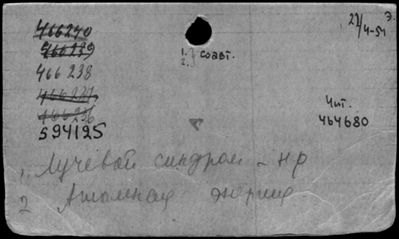 466240
466239
466238
466237
466236
594125
1. } соавт.
2.
27/4-54 Э.
Чит.
464680
1. Лучевой синдром - нр
2 Атомная энергия